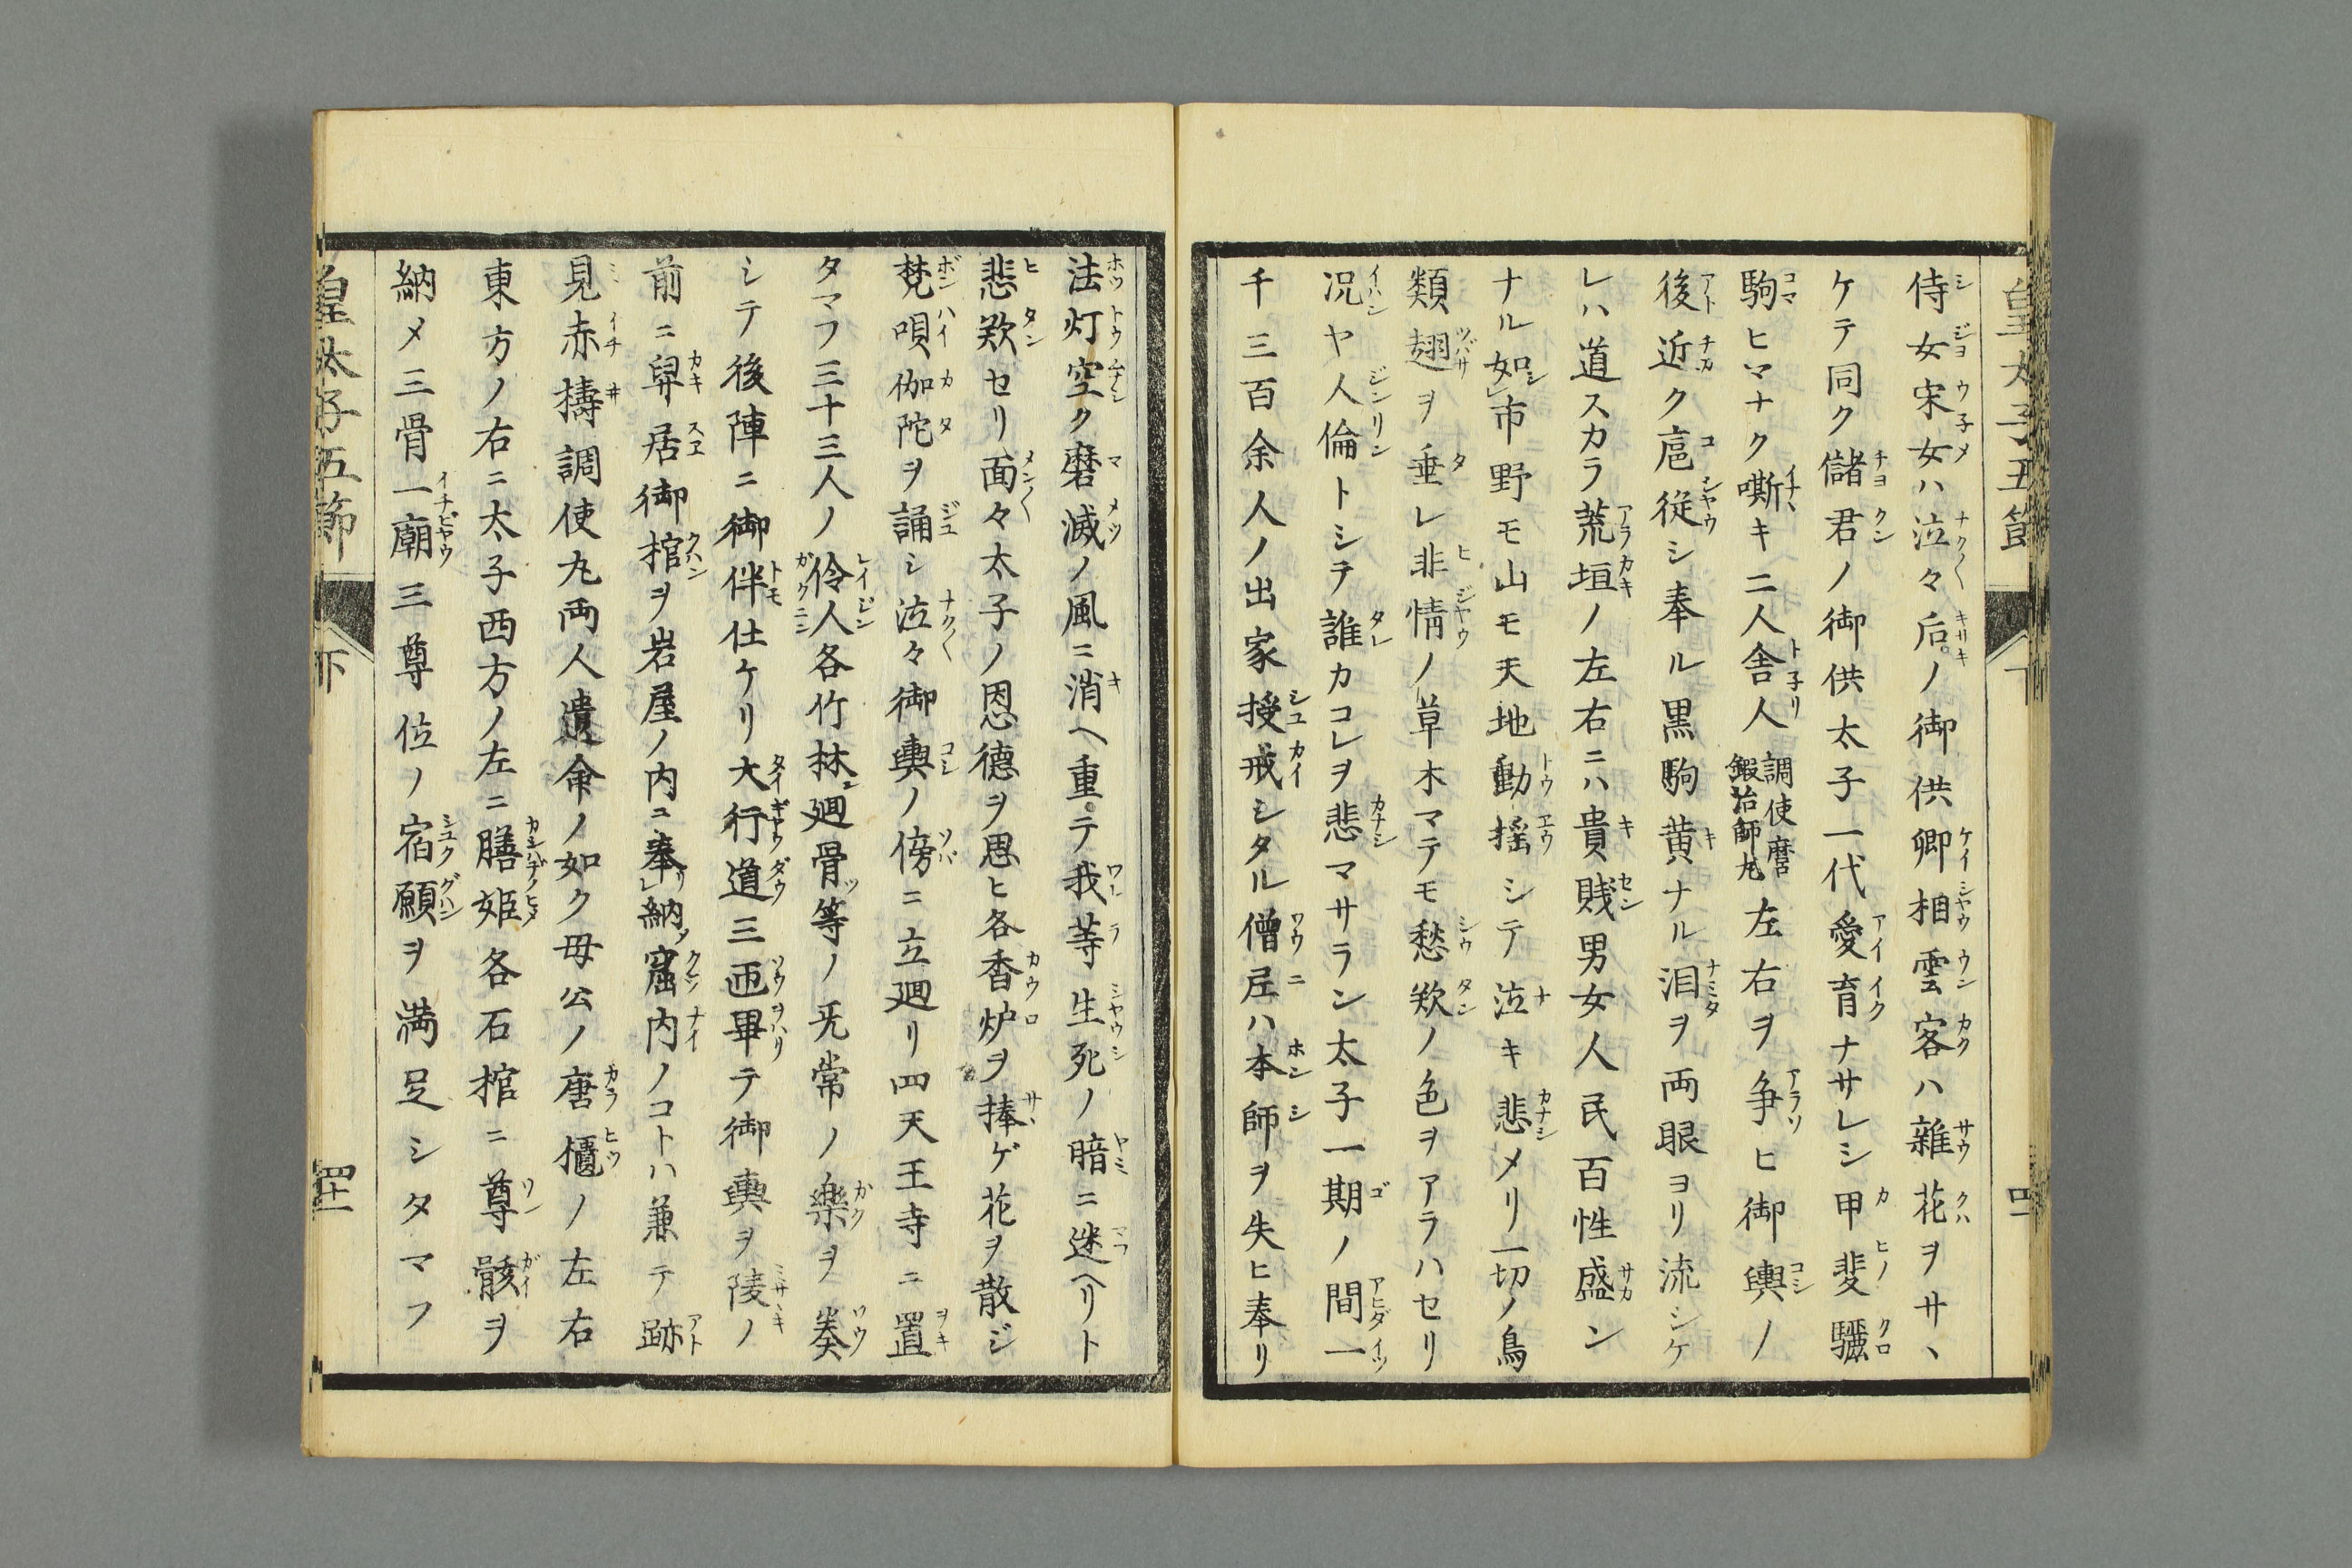 侍女宋女ハ泣々后ノ御供卿相雲客ハ雑花ヲサヽ
ケテ同ク儲君ノ御供太子一代愛育ナサレシ甲斐驪
駒ヒマナク嘶キ二人舎人調使麿鍜治師丸左右ヲ争ヒ御輿ノ
後近ク扈従シ奉ル黒駒黄ナル泪ヲ両眼ヨリ流シケ
レハ道スカラ荒垣ノ左右ニハ貴賤男女人民百性盛ン
ナル如市野モ山モ天地動揺シテ泣キ悲メリ一切ノ鳥
類翅ヲ垂レ非情ノ草木マテモ愁歎ノ色ヲアラハセリ
况ヤ人倫トシテ誰カコレヲ悲マサラン太子一期ノ間一
千三百余人ノ出家授戒シタル僧尼ハ本師ヲ失ヒ奉リ
法灯空ク磨滅ノ風ニ消ヘ重テ我等生死ノ暗ニ迷ヘリト
悲歎セリ面々太子ノ恩徳ヲ思ヒ各香炉ヲ捧ゲ花ヲ散ジ
梵唄伽陀ヲ誦シ泣々御輿ノ傍ニ立廻リ四天王寺ニ置
タマフ三十三人ノ伶人各竹林廻骨等ノ旡常ノ樂ヲ奏
シテ後陣ニ御伴仕ケリ大行道三匝畢テ御輿ヲ陵ノ
前ニ舁居御棺ヲ岩屋ノ内ニ奉納窟内ノコトハ兼テ跡
見赤檮調使丸両人遺命ノ如ク母公ノ唐櫃ノ左右
東方ノ右ニ太子西方ノ左ニ膳姫各石棺ニ尊骸ヲ
納メ三骨一廟三尊位ノ宿願ヲ満足シタマフ
皇太子五節
下
四十一